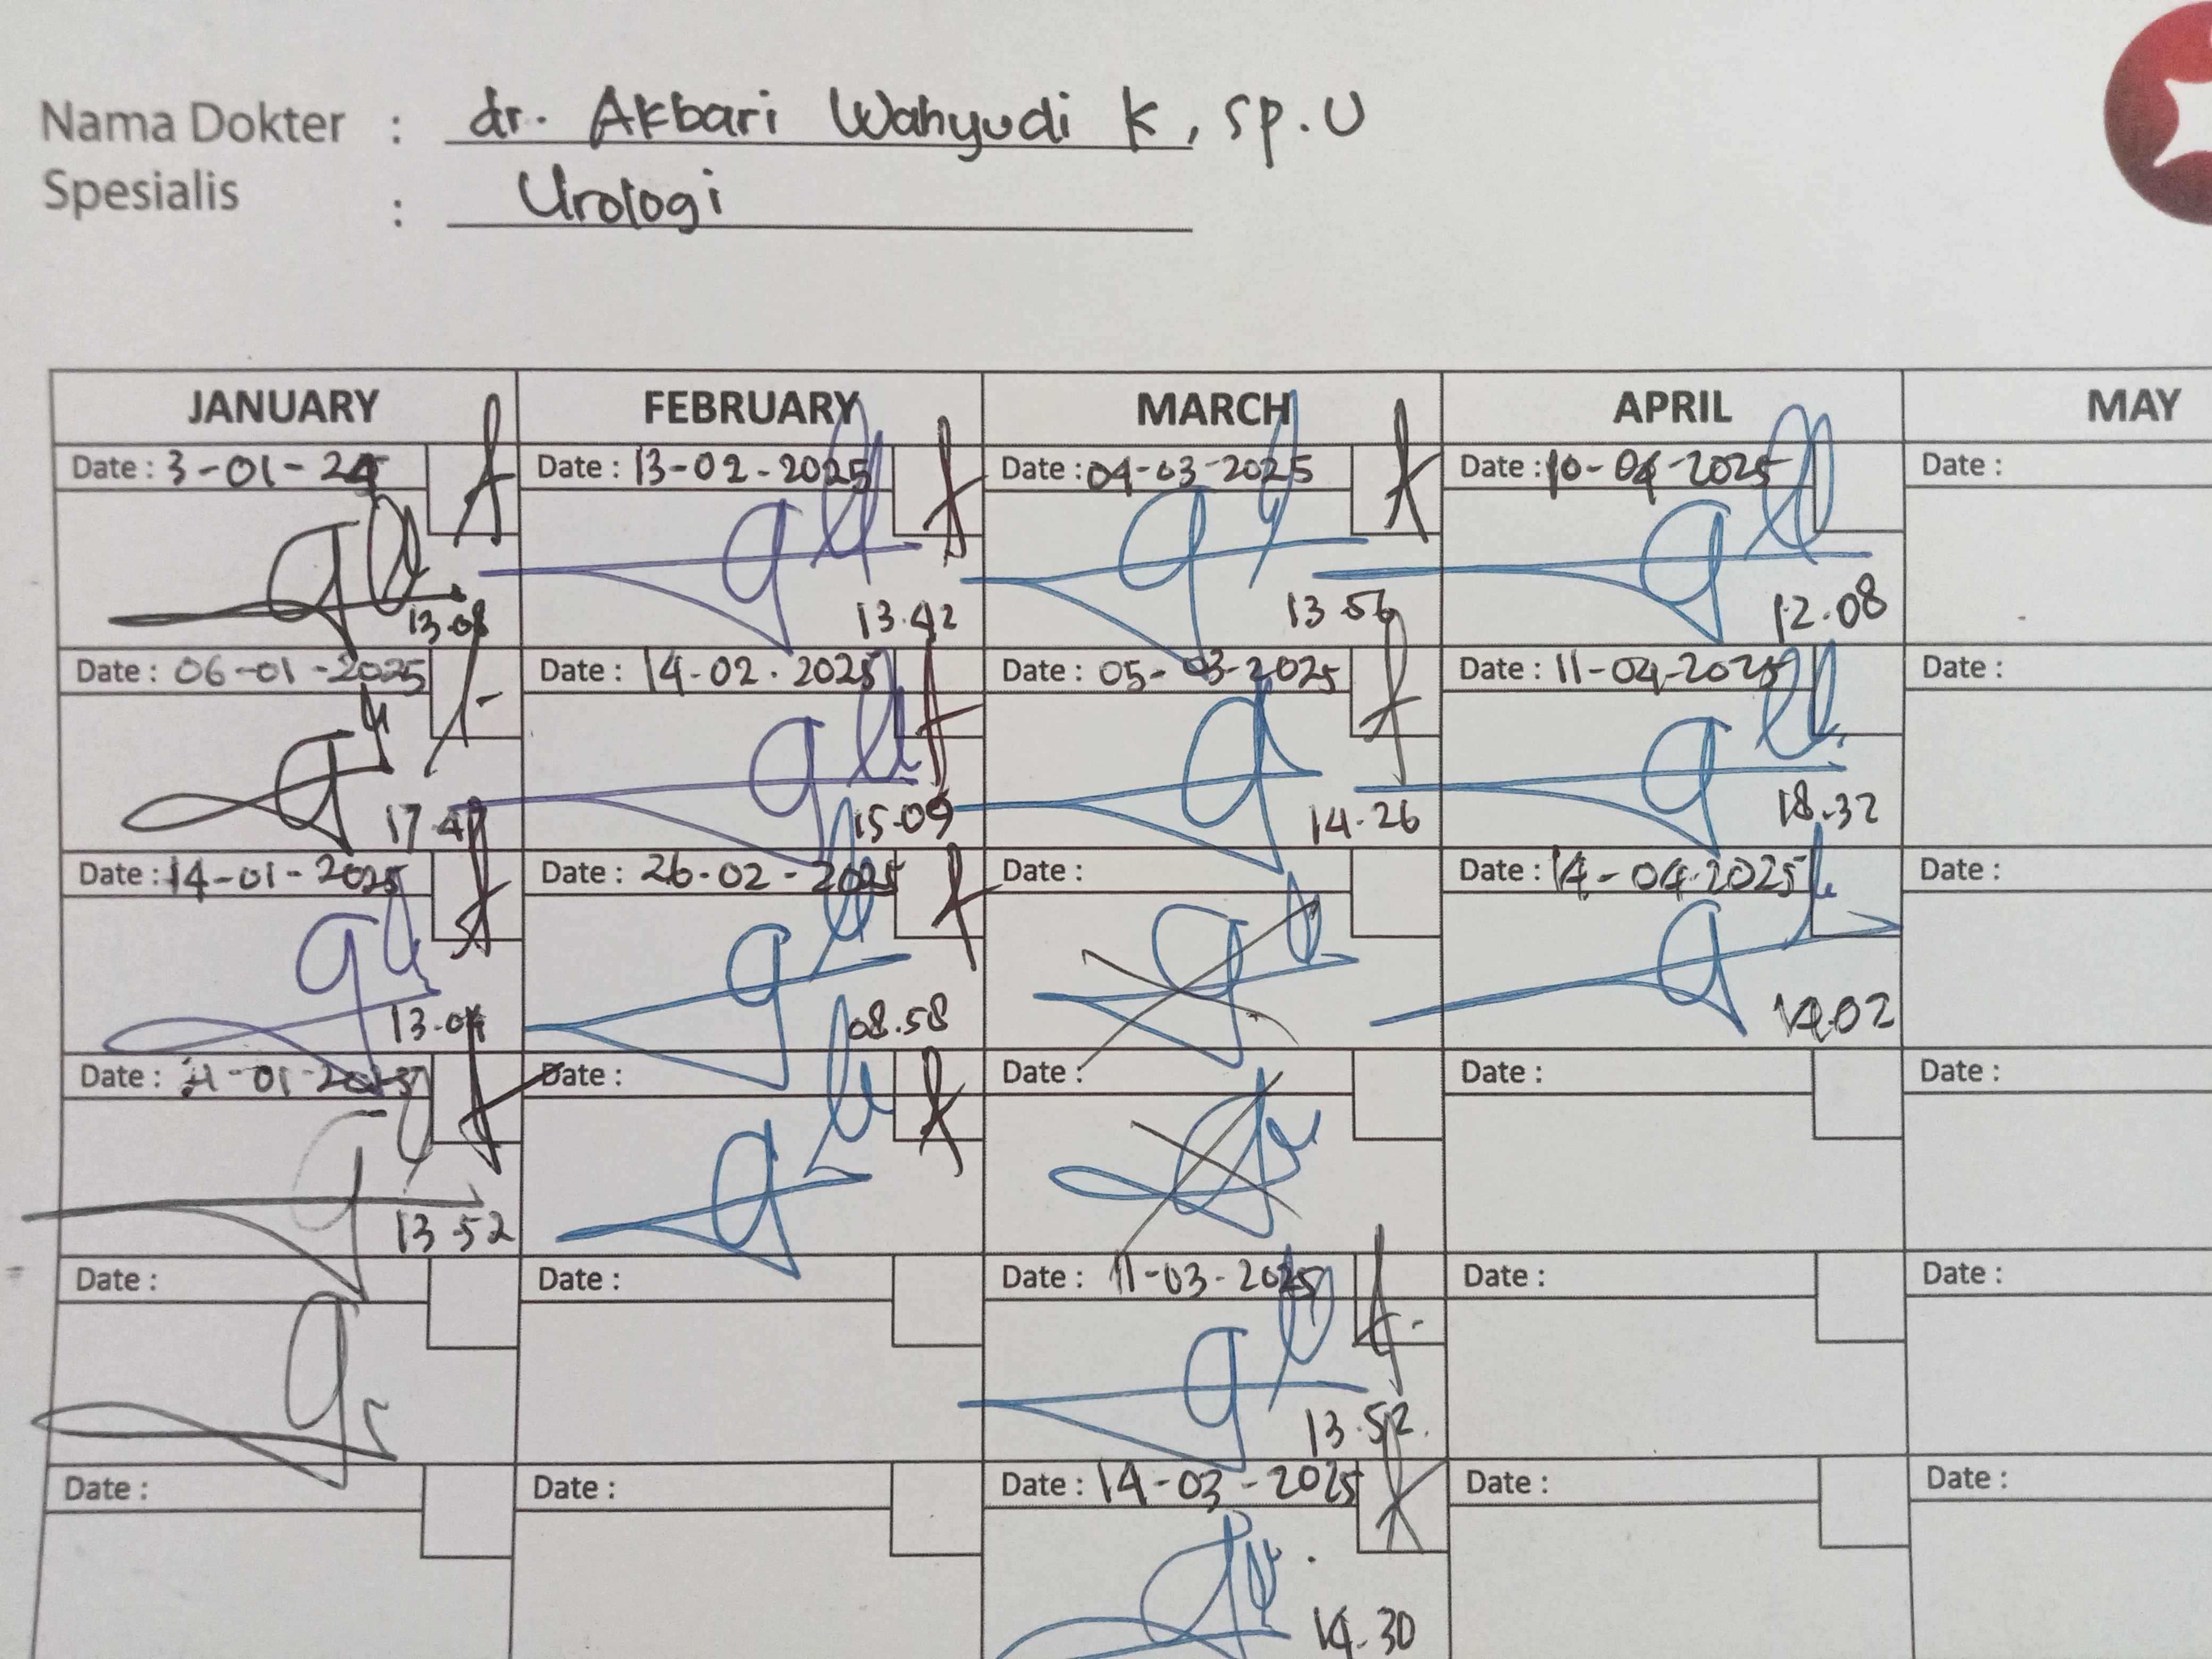 Nama Dokter : dr. Akbari Wahyudi K, Sp.U
Spesialis : Urologi
JANUARY FEBRUARY MARCH APRIL MAY
Date : 3-01- Date : 13-02-2025 Date : 04-03-2025 Date : 10-04-2025 Date :
13.08 13.42 13.56 12.08
Date : 06-01-2025 Date : 14-02.2025 Date : 05-03-2025 Date : 11-04-2025 Date :
17.47 15.09 14.26 18.32
Date : 14-01-2025 Date : 26-02-2025 Date : Date : 14-04-2025 Date :
13.04 08.58 14.02
Date : 21-01-2025 Date : Date : Date : Date :
13.52
Date : Date : Date : 11-03-2025 Date : Date :
13.52.
Date : Date : Date : 14-03-2025 Date : Date :
14.30